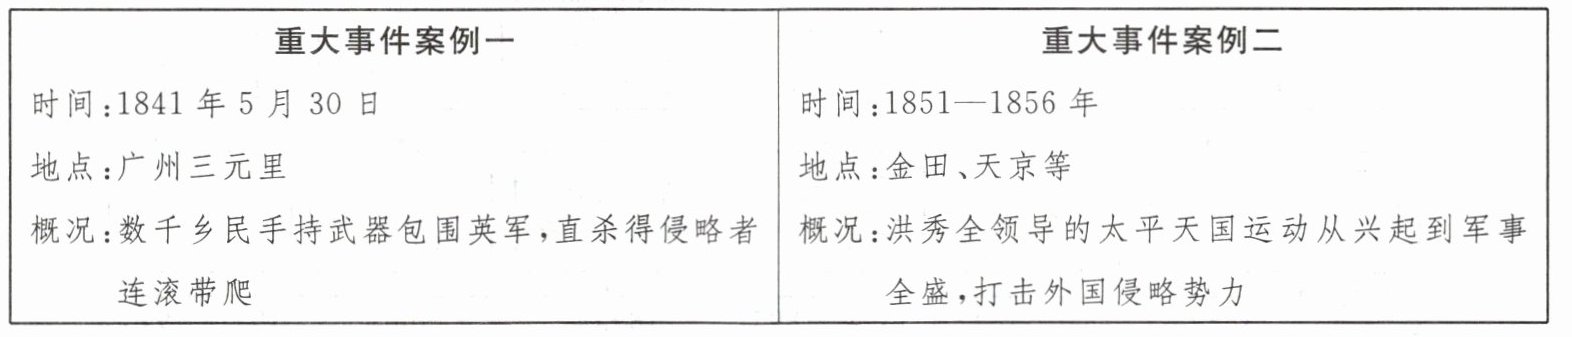 重大事件案例一
时间:1841年5月30日
地点:广州三元里
概况:数千乡民手持武器包围英军,直杀得侵略者
连滚带爬
重大事件案例二
时间:1851—1856年
地点:金田、天京等
概况:洪秀全领导的太平天国运动从兴起到军事
全盛,打击外国侵略势力